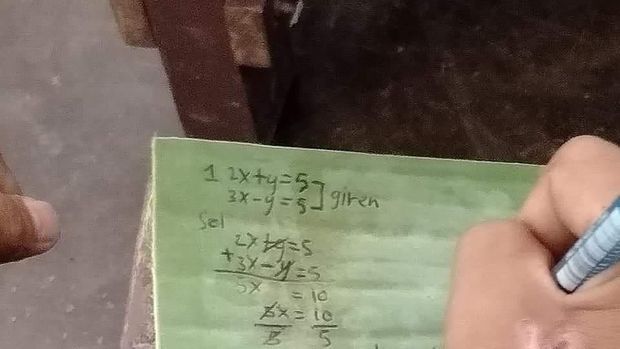 1 2x+y=5
3x-y=5] given
Sol
2x+y=5
+3x-y=5
5x = 10
5x = 10
5 5